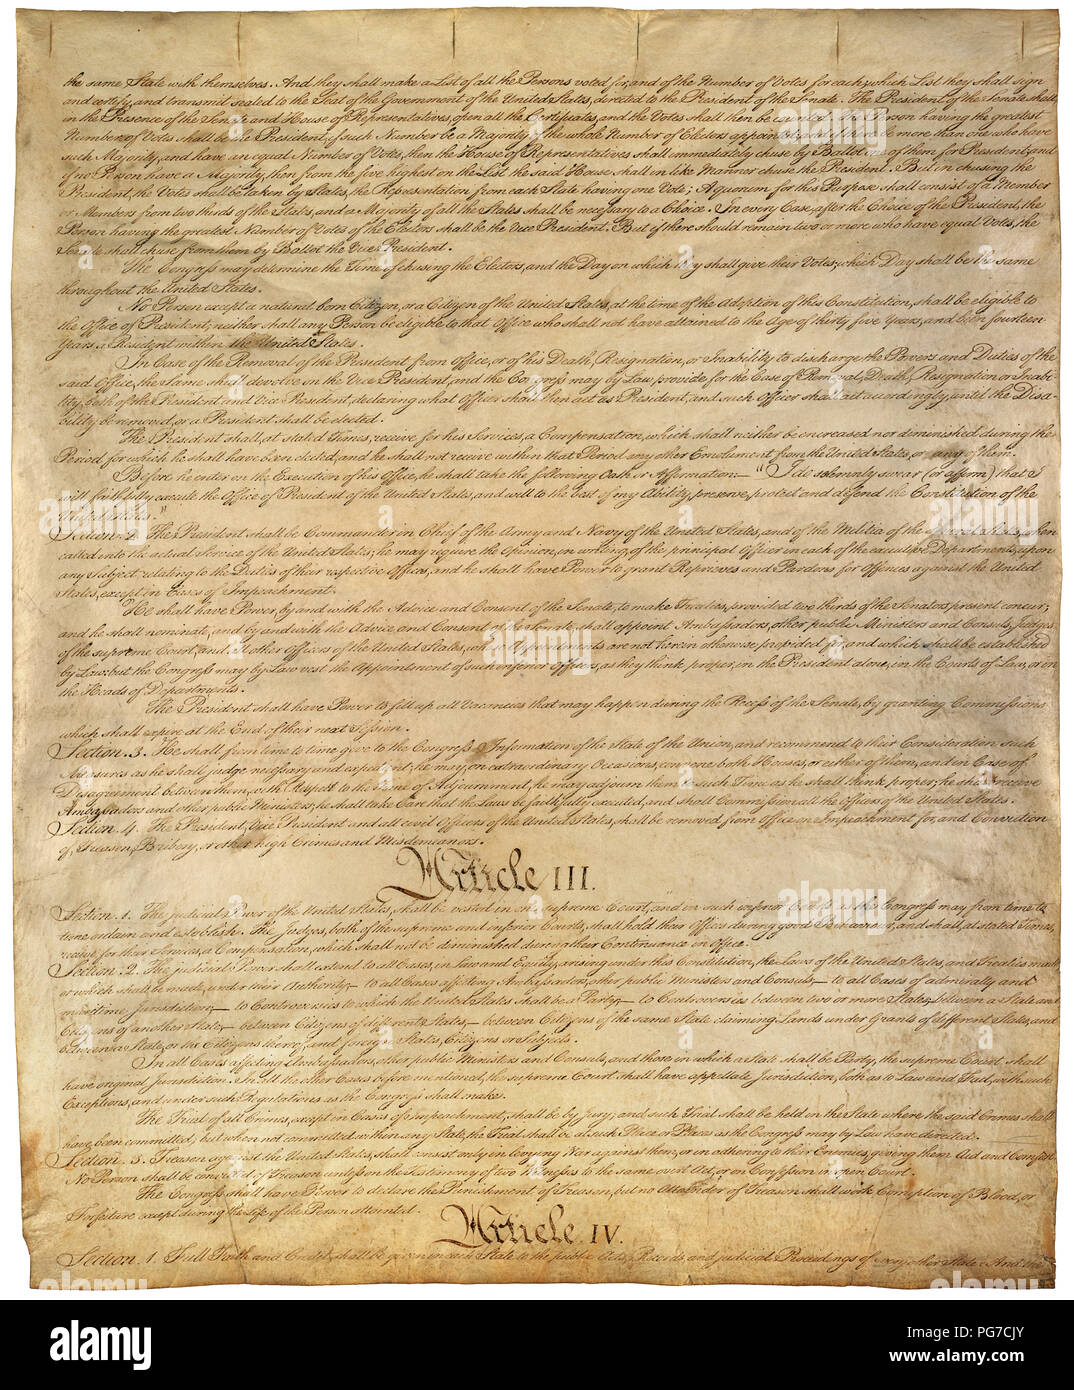 the same State with themselves. And they shall make a List of all the Persons voted for, and of the Number of Votes for each; which List they shall sign
and certify, and transmit sealed to the Seat of the Government of the United States, directed to the President of the Senate. The President of the Senate shall,
in the Presence of the Senate and House of Representatives, open all the Certificates, and the Votes shall then be counted. The Person having the greatest
Number of Votes shall be the President, if such Number be a Majority of the whole Number of Electors appointed; and if there be more than one who have
such Majority, and have an equal Number of Votes, then the House of Representatives shall immediately chuse by Ballot one of them for President; and
if no Person have a Majority, then from the five highest on the List the said House shall in like Manner chuse the President. But in chusing the
President, the Votes shall be taken by States, the Representation from each State having one Vote; A quorum for this Purpose shall consist of a Member
or Members from two thirds of the States, and a Majority of all the States shall be necessary to a Choice. In every Case, after the Choice of the President, the
Person having the greatest Number of Votes of the Electors shall be the Vice President. But if there should remain two or more who have equal Votes, the
Senate shall chuse from them by Ballot the Vice President.
The Congress may determine the Time of chusing the Electors, and the Day on which they shall give their Votes; which Day shall be the same
throughout the United States.
No Person except a natural born Citizen, or a Citizen of the United States, at the time of the Adoption of this Constitution, shall be eligible to
the Office of President; neither shall any Person be eligible to that Office who shall not have attained to the Age of thirty five Years, and been fourteen
Years a Resident within the United States.
In Case of the Removal of the President from Office, or of his Death, Resignation, or Inability to discharge the Powers and Duties of the
said Office, the Same shall devolve on the Vice President, and the Congress may by Law, provide for the Case of Removal, Death, Resignation or Inabi-
lity, both of the President and Vice President, declaring what Officer shall then act as President, and such Officer shall act accordingly, until the Disa-
bility be removed, or a President shall be elected.
The President shall, at stated Times, receive for his Services, a Compensation, which shall neither be encreased nor diminished during the
Period for which he shall have been elected, and he shall not receive within that Period any other Emolument from the United States, or any of them.
Before he enter on the Execution of his Office, he shall take the following Oath or Affirmation:— "I do solemnly swear (or affirm) that I
will faithfully execute the Office of President of the United States, and will to the best of my Ability, preserve, protect and defend the Constitution of the
United States."
Section. 2. The President shall be Commander in Chief of the Army and Navy of the United States, and of the Militia of the several States, when
called into the actual Service of the United States; he may require the Opinion, in writing, of the principal Officer in each of the executive Departments, upon
any Subject relating to the Duties of their respective Offices, and he shall have Power to grant Reprieves and Pardons for Offences against the United
States, except in Cases of Impeachment.
He shall have Power, by and with the Advice and Consent of the Senate, to make Treaties, provided two thirds of the Senators present concur;
and he shall nominate, and by and with the Advice and Consent of the Senate, shall appoint Ambassadors, other public Ministers and Consuls, Judges
of the supreme Court, and all other Officers of the United States, whose Appointments are not herein otherwise provided for, and which shall be established
by Law: but the Congress may by Law vest the Appointment of such inferior Officers, as they think proper, in the President alone, in the Courts of Law, or in
the Heads of Departments.
The President shall have Power to fill up all Vacancies that may happen during the Recess of the Senate, by granting Commissions
which shall expire at the End of their next Session.
Section. 3. He shall from time to time give to the Congress Information of the State of the Union, and recommend to their Consideration such
Measures as he shall judge necessary and expedient; he may, on extraordinary Occasions, convene both Houses, or either of them, and in Case of
Disagreement between them, with Respect to the Time of Adjournment, he may adjourn them to such Time as he shall think proper; he shall receive
Ambassadors and other public Ministers; he shall take Care that the Laws be faithfully executed, and shall Commission all the Officers of the United States.
Section. 4. The President, Vice President and all civil Officers of the United States, shall be removed from Office on Impeachment for, and Conviction
of, Treason, Bribery, or other high Crimes and Misdemeanors.
Article III.
Section. 1. The judicial Power of the United States, shall be vested in one supreme Court, and in such inferior Courts as the Congress may from time to
time ordain and establish. The Judges, both of the supreme and inferior Courts, shall hold their Offices during good Behaviour, and shall, at stated Times,
receive for their Services, a Compensation, which shall not be diminished during their Continuance in Office.
Section. 2. The judicial Power shall extend to all Cases, in Law and Equity, arising under this Constitution, the Laws of the United States, and Treaties made,
or which shall be made, under their Authority;— to all Cases affecting Ambassadors, other public Ministers and Consuls;— to all Cases of admiralty and
maritime Jurisdiction;— to Controversies to which the United States shall be a Party;— to Controversies between two or more States;— between a State and
Citizens of another State;— between Citizens of different States,— between Citizens of the same State claiming Lands under Grants of different States, and
between a State, or the Citizens thereof, and foreign States, Citizens or Subjects.
In all Cases affecting Ambassadors, other public Ministers and Consuls, and those in which a State shall be Party, the supreme Court shall
have original Jurisdiction. In all the other Cases before mentioned, the supreme Court shall have appellate Jurisdiction, both as to Law and Fact, with such
Exceptions, and under such Regulations as the Congress shall make.
The Trial of all Crimes, except in Cases of Impeachment, shall be by Jury; and such Trial shall be held in the State where the said Crimes shall
have been committed; but when not committed within any State, the Trial shall be at such Place or Places as the Congress may by Law have directed.
Section. 3. Treason against the United States, shall consist only in levying War against them, or in adhering to their Enemies, giving them Aid and Comfort.
No Person shall be convicted of Treason unless on the Testimony of two Witnesses to the same overt Act, or on Confession in open Court.
The Congress shall have Power to declare the Punishment of Treason, but no Attainder of Treason shall work Corruption of Blood, or
Forfeiture except during the Life of the Person attainted.
Article. IV.
Section. 1. Full Faith and Credit shall be given in each State to the public Acts, Records, and judicial Proceedings of every other State. And the
alamy
Image ID: PG7CJY
www.alamy.com